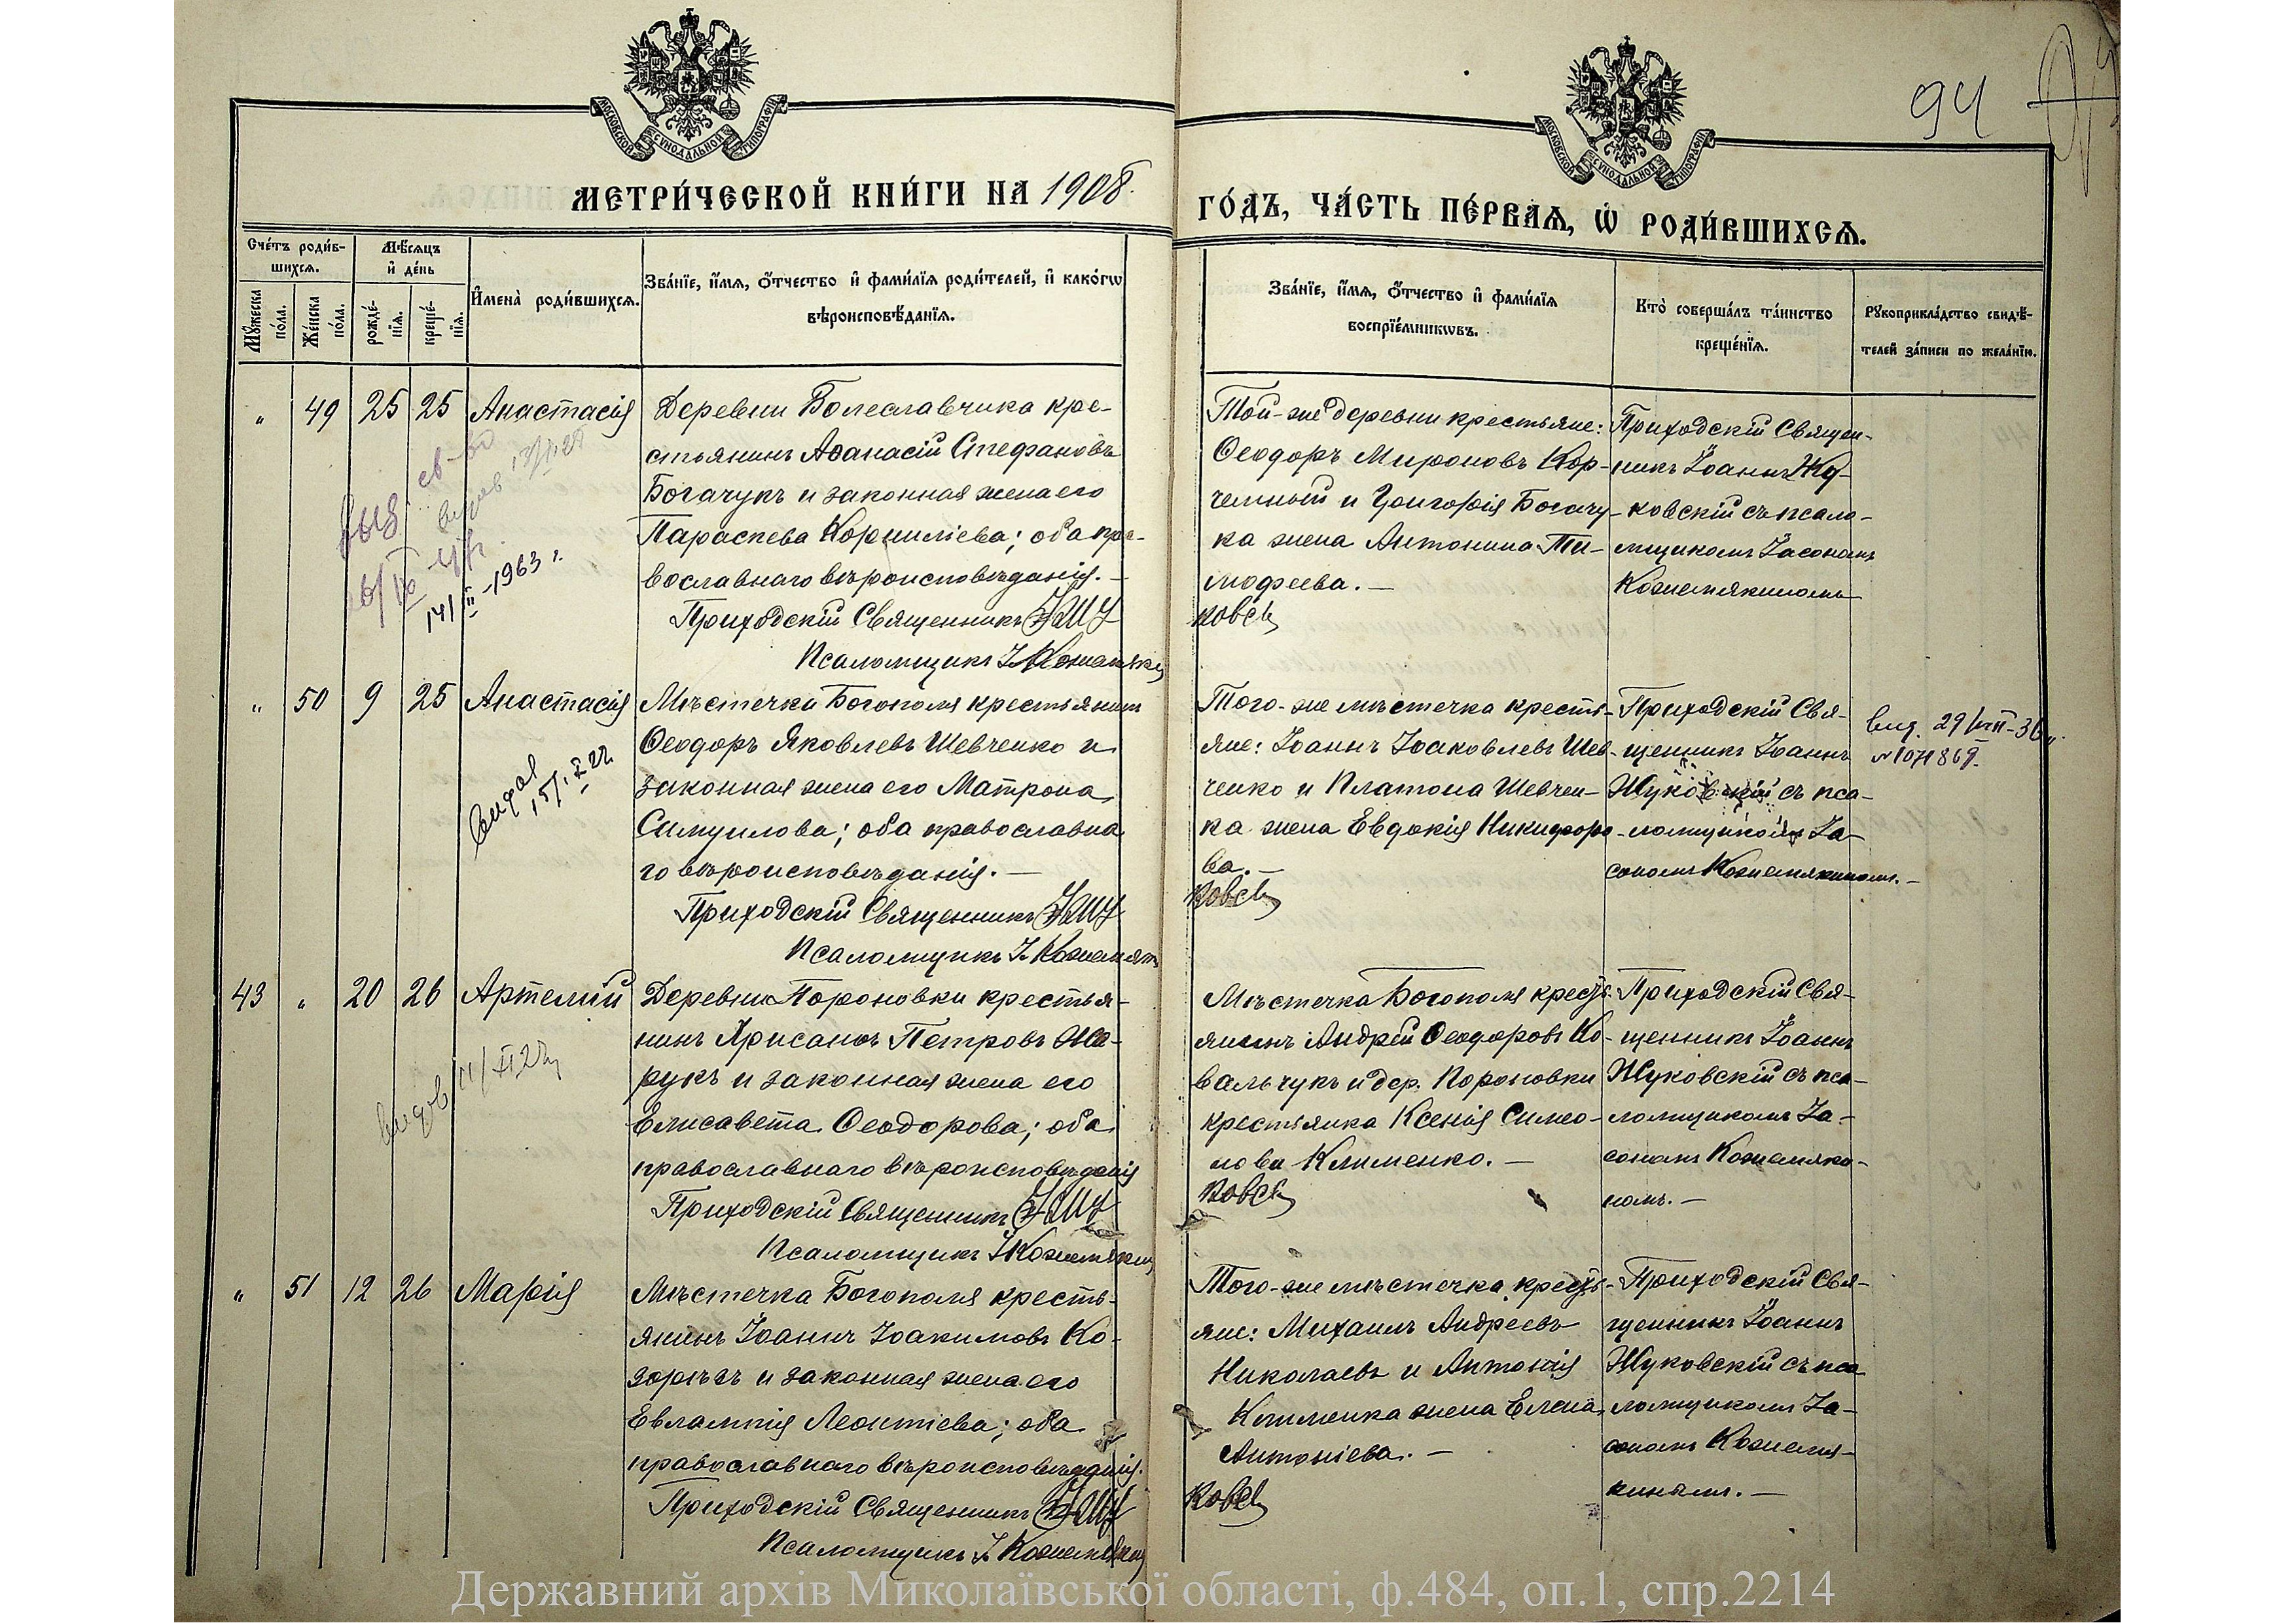 МОСКОВСКОЙ СУНОДАЛЬНОЙ ТИПОГРАФІИ
МОСКОВСКОЙ СУНОДАЛЬНОЙ ТИПОГРАФІИ
94
МЕТРИ́ЧЕСКОЙ КНИ́ГИ НА 1908
ГО́ДЪ, ЧА́СТЬ ПЕ́РВАѦ, Ѡ҆ РОДИ́ВШИХСѦ.
Сче́тъ роди́в-
шихсѧ.
Мѣ́сѧцъ
и҆ де́нь
Мꙋ́жеска
по́ла.
Же́нска
по́ла.
рожде́-
нїѧ.
креще́-
нїѧ.
И҆мена̀ роди́вшихсѧ.
Зва́нїе, и҆́мѧ, ѻ҆́тчество и҆ фами́лїѧ роди́телей, и҆ како́гѡ
вѣроисповѣ́данїѧ.
Зва́нїе, и҆́мѧ, ѻ҆́тчество и҆ фами́лїѧ
воспрїе́мникѡвъ.
Кто̀ соверша́лъ та́инство
креще́нїѧ.
Рꙋкоприкла́дство свидѣ́-
телей за́писи по жела́нїю.
" 49 25 25 Анастасія
Деревни Болеславчика кре-
стьянинъ Аѳанасій Стефановъ
Богачукъ и законная жена его
Параскева Корниліева; оба пра-
вославнаго вѣроисповѣданія. —
Приходскій Священникъ І Жу
Псаломщикъ І. Кожемяки
Той-же деревни крестьяне:
Ѳеодоръ Мироновъ Кор-
чемный и Григорія Богачу-
ка жена Антонина Ти-
моѳеева. —
ковск
Приходскій Священ-
никъ Іоаннъ Жу-
ковскій съ псало-
мщикомъ Іасономъ
Кожемякинымъ
выд
св-во
видав
14/II-1963 г.
" 50 9 25 Анастасія
Мѣстечка Богополя крестьянинъ
Ѳеодоръ Яковлевъ Шевченко и
законная жена его Матрона
Самуилова; оба православна-
го вѣроисповѣданія. —
Приходскій Священникъ І Жу
Псаломщикъ І. Кожемяк
Того-же мѣстечка кресть-
яне: Іоаннъ Іоаковлевъ Шев-
ченко и Платона Шевчен-
ка жена Евдокія Никифоро-
ва. —
ковск
Приходскій Свя-
щенникъ Іоаннъ
Жуковскій съ пса-
ломщикомъ Іа-
сономъ Кожемякинымъ. —
выд. 29/VIII-36
№ 1071869
видав
43 " 20 26 Артемій
Деревни Пороновки крестья-
нинъ Хрисанѳъ Петровъ Же-
рукъ и законная жена его
Елисавета Ѳеодорова; оба
православнаго вѣроисповѣданія
Приходскій Священникъ І Жу
Псаломщикъ І Кожемякин
Мѣстечка Богополя кресть-
янинъ Андрей Ѳеодоровъ Ко-
вальчукъ и дер. Пороновки
крестьянка Ксенія Симео-
нова Клименко. —
ковск
Приходскій Свя-
щенникъ Іоаннъ
Жуковскій съ пса-
ломщикомъ Іа-
сономъ Кожемяки-
нымъ. —
видав
" 51 12 26 Марія
Мѣстечка Богополя кресть-
янинъ Іоаннъ Іоакимовъ Ко-
зорѣзъ и законная жена его
Евлампія Леонтіева; оба
православнаго вѣроисповѣданія.
Приходскій Священникъ І Жу
Псаломщикъ І. Кожемякин
Того-же мѣстечка кресть-
яне: Михаилъ Андреевъ
Николаевъ и Антонія
Клименка жена Елена
Антоніева. —
ковск
Приходскій Свя-
щенникъ Іоаннъ
Жуковскій съ пса
ломщикомъ Іа-
сономъ Кожемя-
кинымъ. —
Державний архів Миколаївської області, ф.484, оп.1, спр.2214